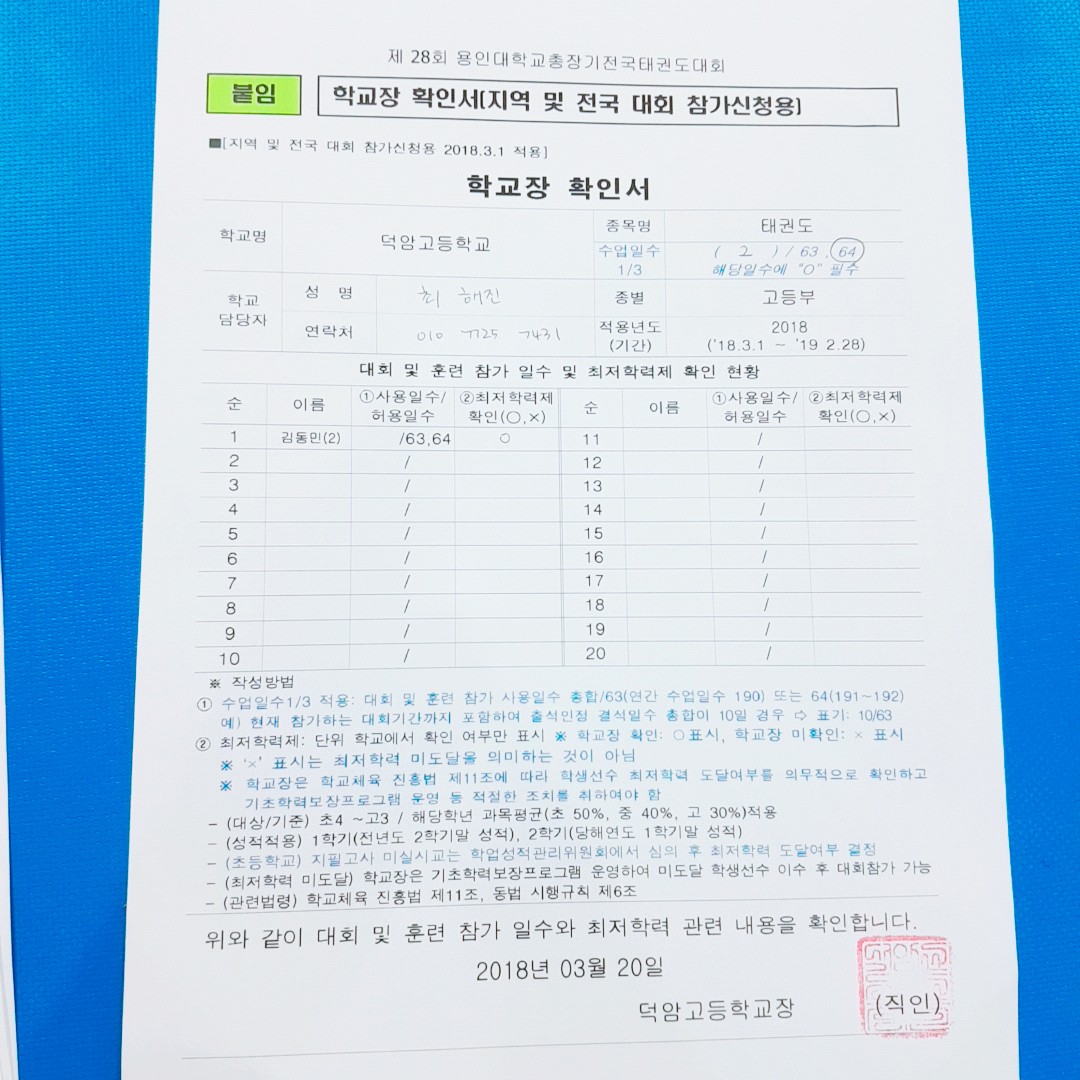 제 28회 용인대학교총장기전국태권도대회
붙임
학교장 확인서(지역 및 전국 대회 참가신청용)
■[지역 및 전국 대회 참가신청용 2018.3.1 적용]
학교장 확인서
학교명 덕암고등학교 종목명 태권도
수업일수 1/3 ( 2 ) / 63, 64
해당일수에 "O" 필수
학교 담당자 성 명 최 해진 종별 고등부
연락처 010 7725 7431 적용년도 (기간) 2018
('18.3.1 ~ '19 2.28)
대회 및 훈련 참가 일수 및 최저학력제 확인 현황
순 이름 ①사용일수/허용일수 ②최저학력제 확인(○,×) 순 이름 ①사용일수/허용일수 ②최저학력제 확인(○,×)
1 김동민(2) /63,64 ○ 11 /
2 / 12 /
3 / 13 /
4 / 14 /
5 / 15 /
6 / 16 /
7 / 17 /
8 / 18 /
9 / 19 /
10 / 20 /
※ 작성방법
① 수업일수1/3 적용: 대회 및 훈련 참가 사용일수 총합/63(연간 수업일수 190) 또는 64(191~192)
예) 현재 참가하는 대회기간까지 포함하여 출석인정 결석일수 총합이 10일 경우 ⇨ 표기: 10/63
② 최저학력제: 단위 학교에서 확인 여부만 표시 ※ 학교장 확인: ○표시, 학교장 미확인: × 표시
※ '×' 표시는 최저학력 미도달을 의미하는 것이 아님
※ 학교장은 학교체육 진흥법 제11조에 따라 학생선수 최저학력 도달여부를 의무적으로 확인하고
기초학력보장프로그램 운영 등 적절한 조치를 취하여야 함
- (대상/기준) 초4 ~고3 / 해당학년 과목평균(초 50%, 중 40%, 고 30%)적용
- (성적적용) 1학기(전년도 2학기말 성적), 2학기(당해연도 1학기말 성적)
- (초등학교) 지필고사 미실시교는 학업성적관리위원회에서 심의 후 최저학력 도달여부 결정
- (최저학력 미도달) 학교장은 기초학력보장프로그램 운영하여 미도달 학생선수 이수 후 대회참가 가능
- (관련법령) 학교체육 진흥법 제11조, 동법 시행규칙 제6조
위와 같이 대회 및 훈련 참가 일수와 최저학력 관련 내용을 확인합니다.
2018년 03월 20일
덕암고등학교장 (직인)